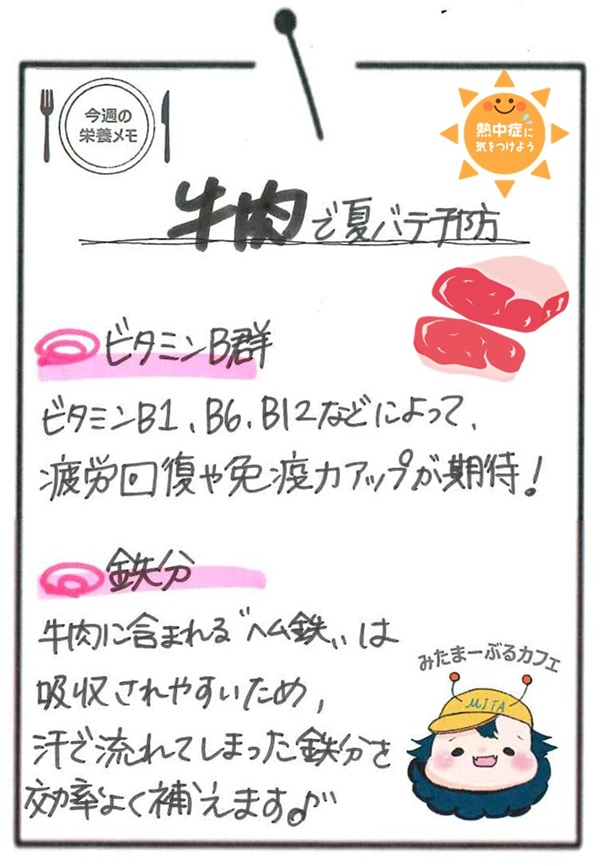 今週の
栄養メモ
熱中症に
気をつけよう
牛肉で夏バテ予防
ビタミンB群
ビタミンB1、B6、B12などによって、
疲労回復や免疫力アップが期待!
鉄分
牛肉に含まれる〝ヘム鉄〟は
吸収されやすいため、
汗で流れてしまった鉄分を
効率よく補えます♪
みたまーぶるカフェ
MITA